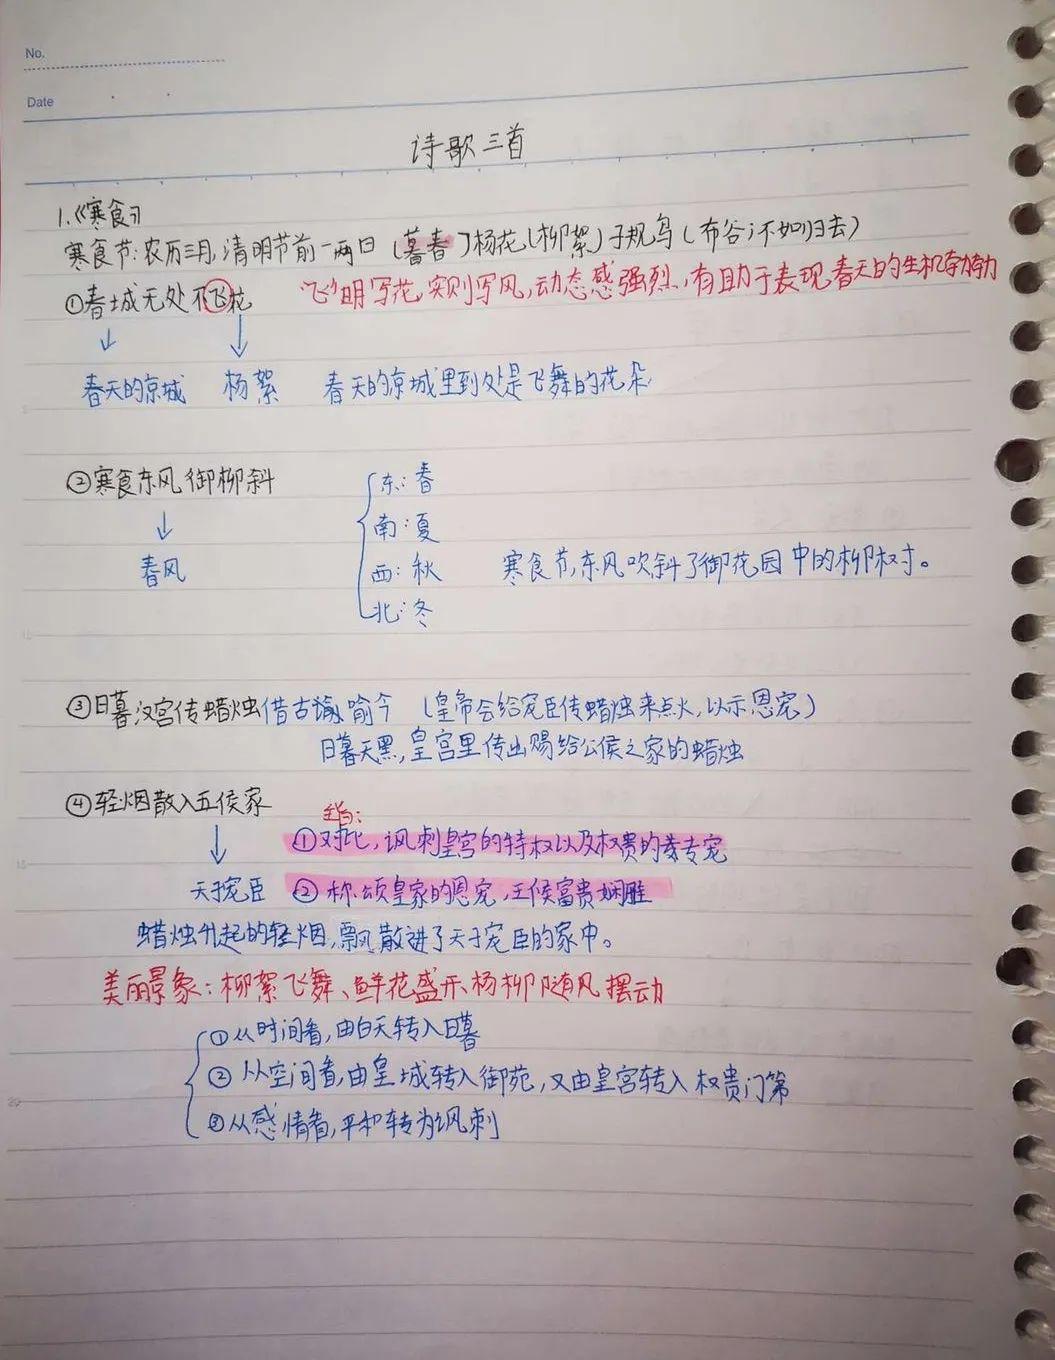 No.
Date
诗歌三首
1.《寒食》
寒食节:农历三月,清明节前一两日(暮春)杨花(柳絮)子规鸟(布谷;不如归去)
①春城无处不飞花 "飞"明写花,实则写风,动态感强烈,有助于表现春天的生机勃勃
春天的京城 杨絮 春天的京城里到处是飞舞的花朵
②寒食东风御柳斜 东:春
南:夏
春风 西:秋 寒食节,东风吹斜了御花园中的柳树。
北:冬
③日暮汉宫传蜡烛借古喻今 (皇帝会给宠臣传蜡烛来点火,以示恩宠)
日暮天黑,皇宫里传出赐给公侯之家的蜡烛
④轻烟散入五侯家
主旨:
①对比,讽刺皇宫的特权以及权贵的专宠
天子宠臣 ②称颂皇家的恩宠,王侯富贵娴雅
蜡烛升起的轻烟,飘散进了天子宠臣的家中。
美丽景象:柳絮飞舞、鲜花盛开、杨柳随风摆动
①从时间看,由白天转入日暮
②从空间看,由皇城转入御苑,又由皇宫转入权贵门第
③从感情看,平和转为讽刺